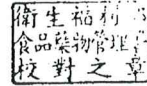 衛生福利
食品藥物管理
校對之章